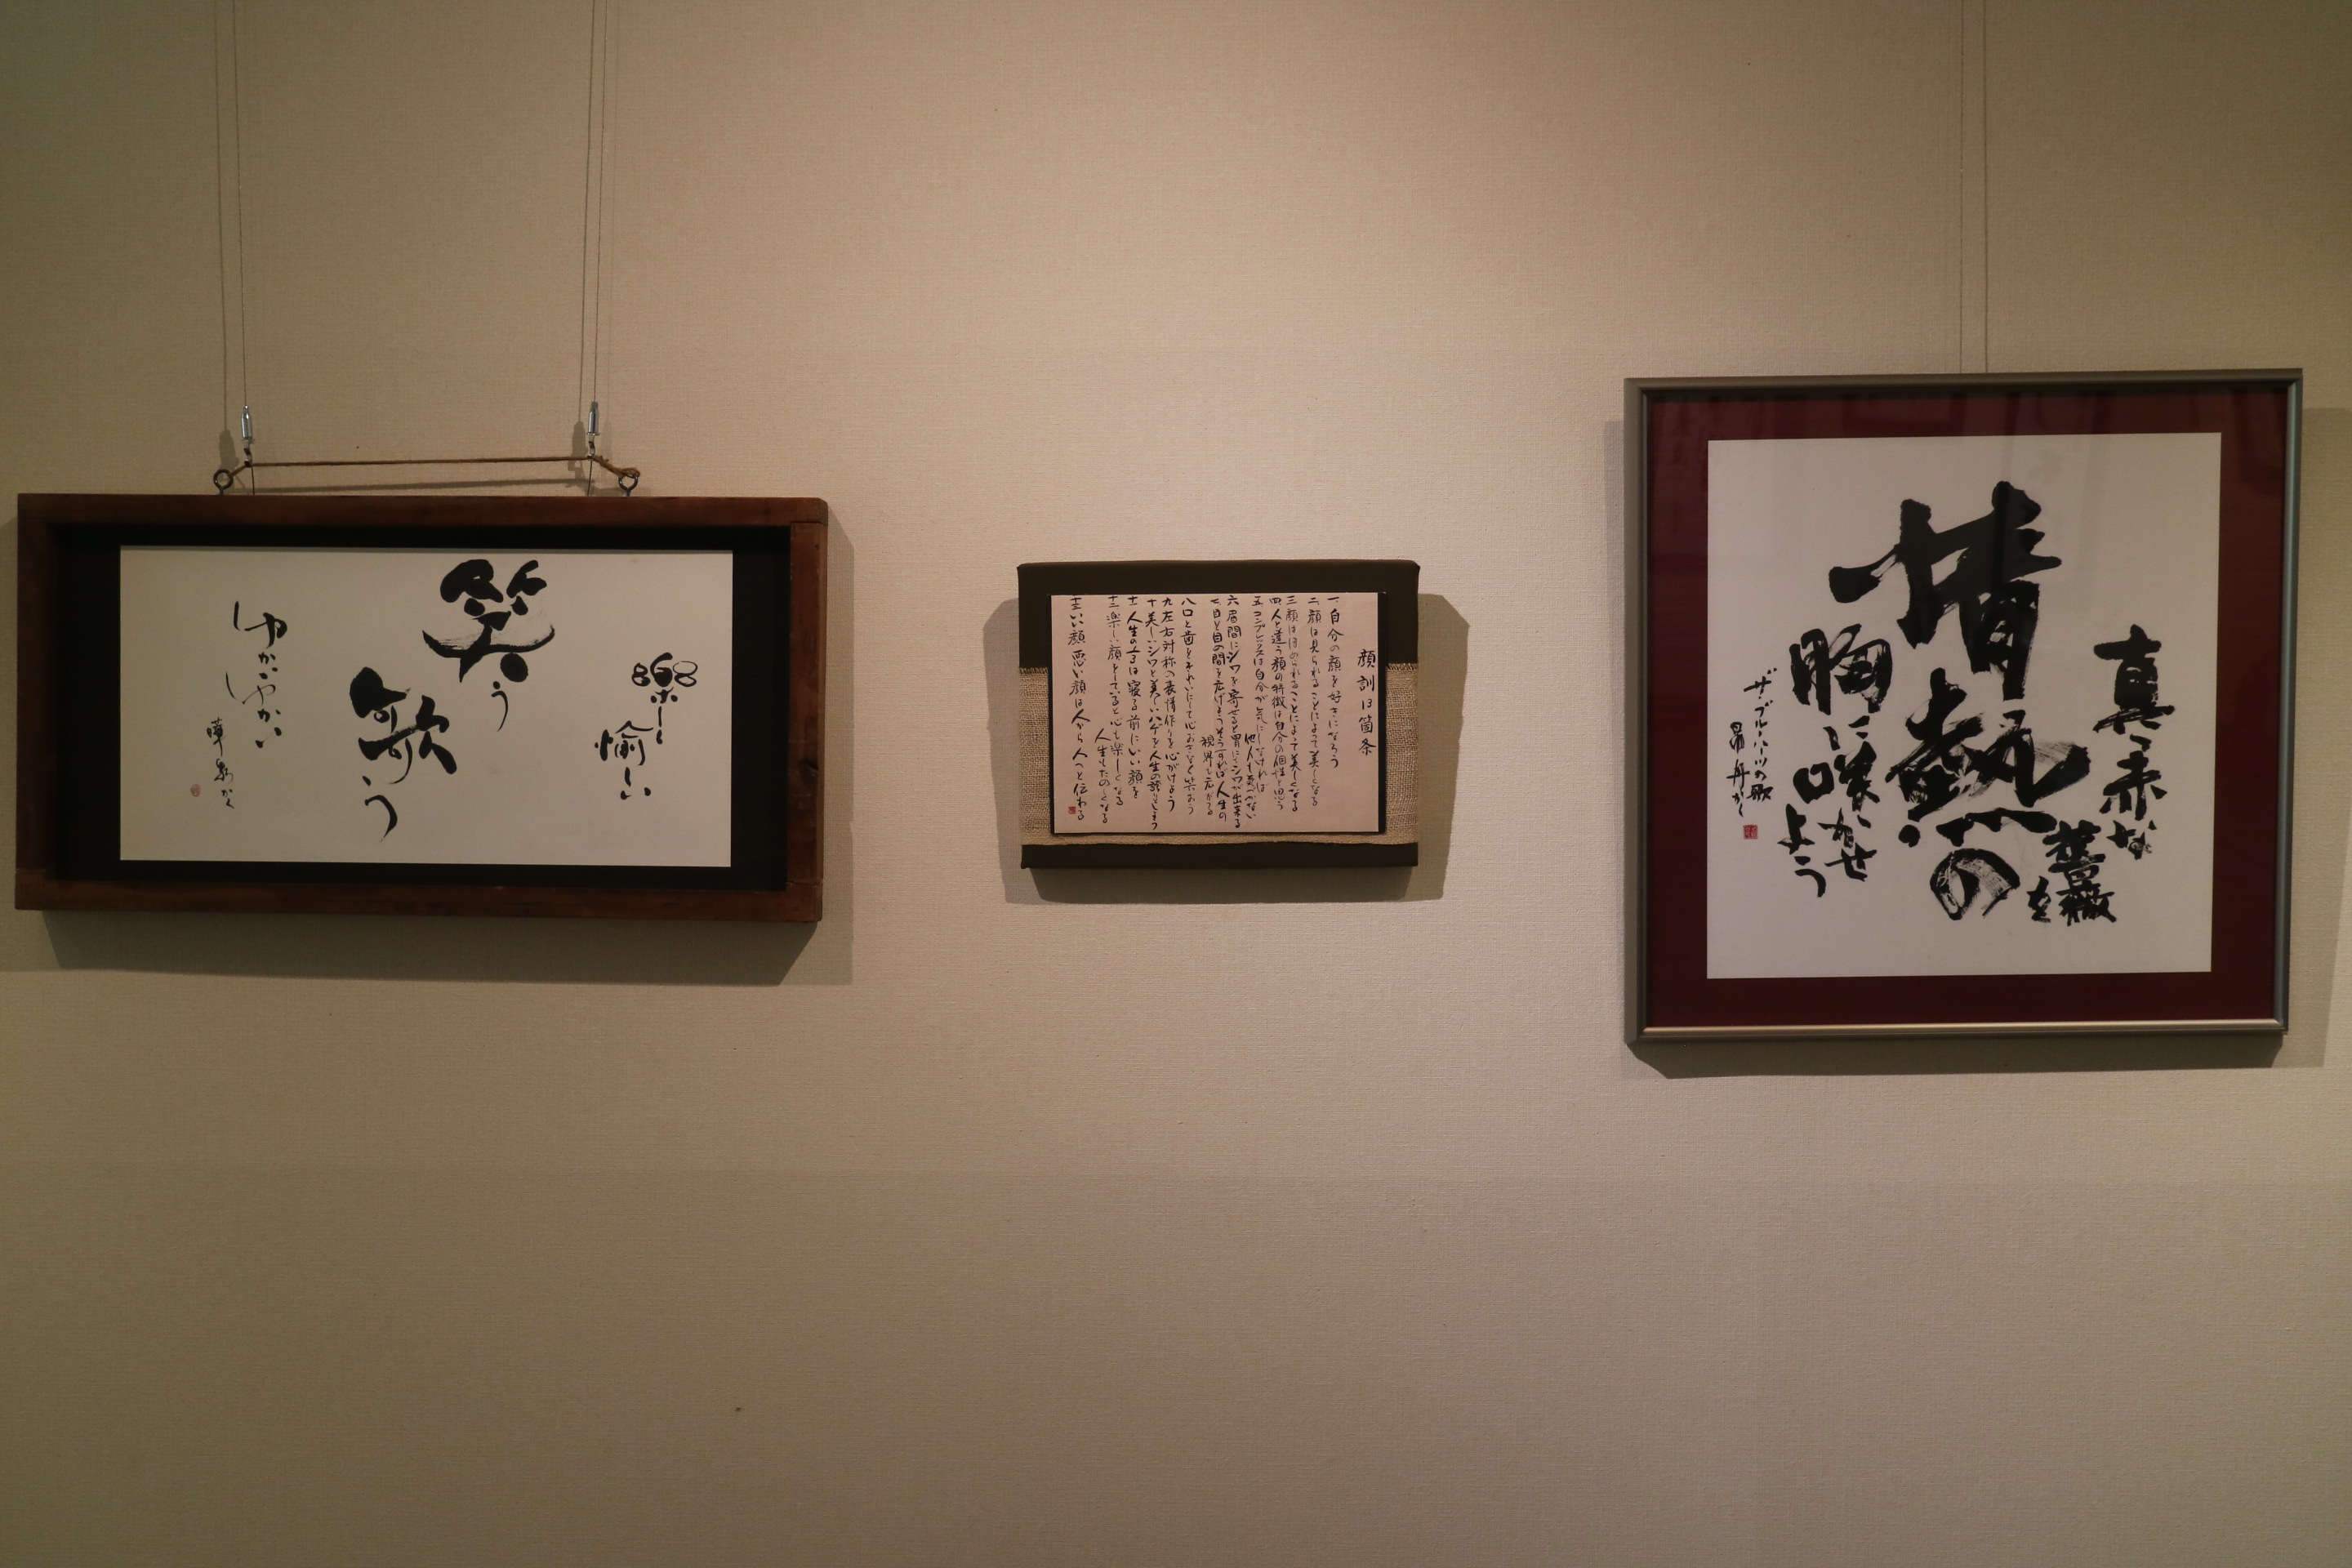 楽しし
愉しい
笑う
歌う
ゆかい
ゆかい
かく
顔訓13箇条
一 自分の顔を好きになろう
二 顔は見られることによって美しくなる
三 顔はほめられることによって美しくなる
四 人と違う顔の特徴は自分の個性と思う
五 コンプレックスは自分が気にしなければ
他人も気づかない
六 眉間にシワを寄せると胃にシワが出来る
七 目と目の間を広げようそうすれば人生の
視界も広がる
八 口と歯をきれいにして心おきなく笑おう
九 左右対称の表情作りを心がけよう
十 美しいシワと美しいハゲを人生の誇りとしよう
十一 人生の三分の一は寝る前にいい顔を
十二 楽しい顔をしていると心も楽しくなる
人生もたのしくなる
十三 いい顔悪い顔は人から人へと伝わる
真っ赤な
薔薇を
情熱の
胸に咲かせ
よう
ザ・ブルーハーツの歌
昴丹かく